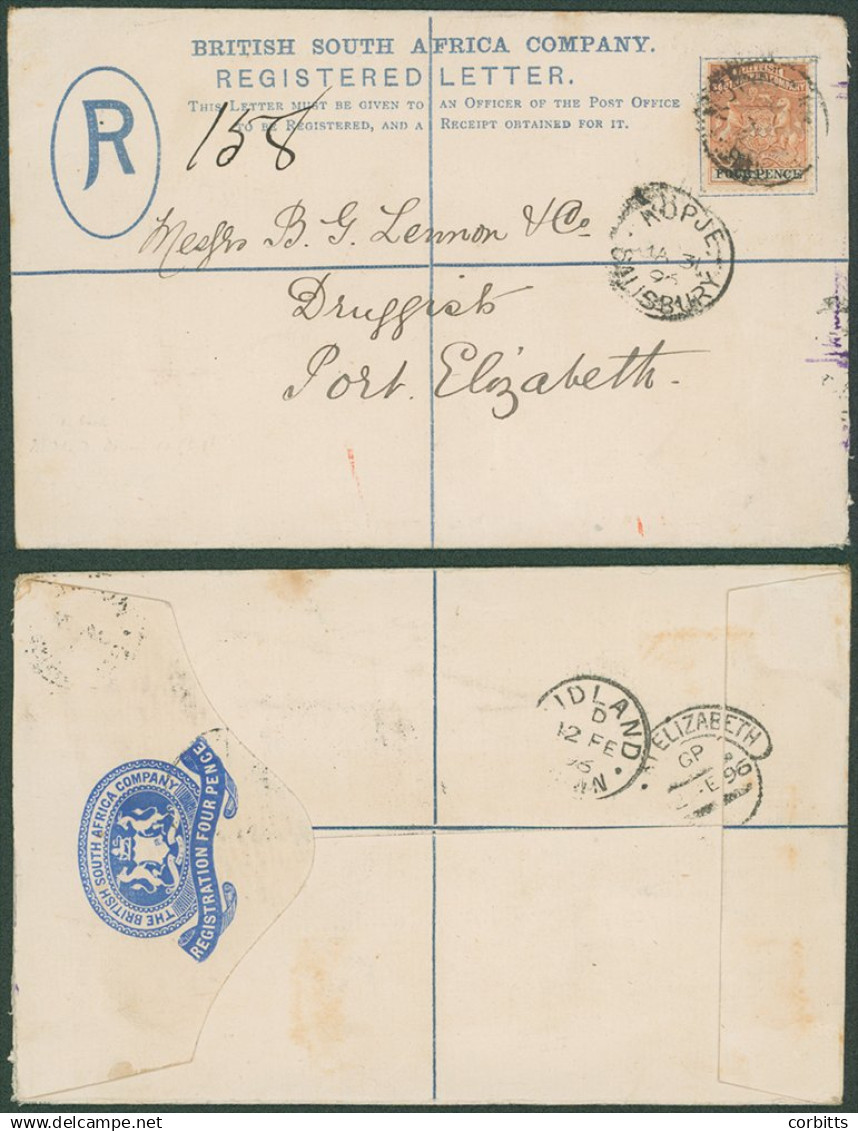 BRITISH SOUTH AFRICA COMPANY.
REGISTERED LETTER.
THIS LETTER MUST BE GIVEN TO AN OFFICER OF THE POST OFFICE
TO BE REGISTERED, AND A RECEIPT OBTAINED FOR IT.
R
158
FOUR PENCE
Messrs B. G. Lennon & Co
KOPJE
SALISBURY
Druggists
Port Elizabeth.
IDLAND
D
12 FE
ELIZABETH
GP
96
THE BRITISH SOUTH AFRICA COMPANY
REGISTRATION FOUR PENCE
www.delcampe.net
corbitts